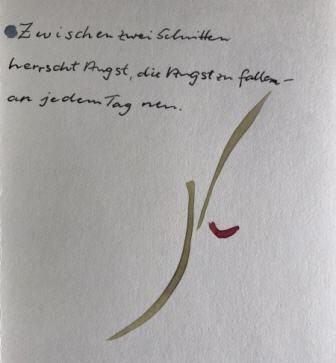 Zwischen zwei Schritten
herrscht Angst, die Angst zu fallen –
an jedem Tag neu.